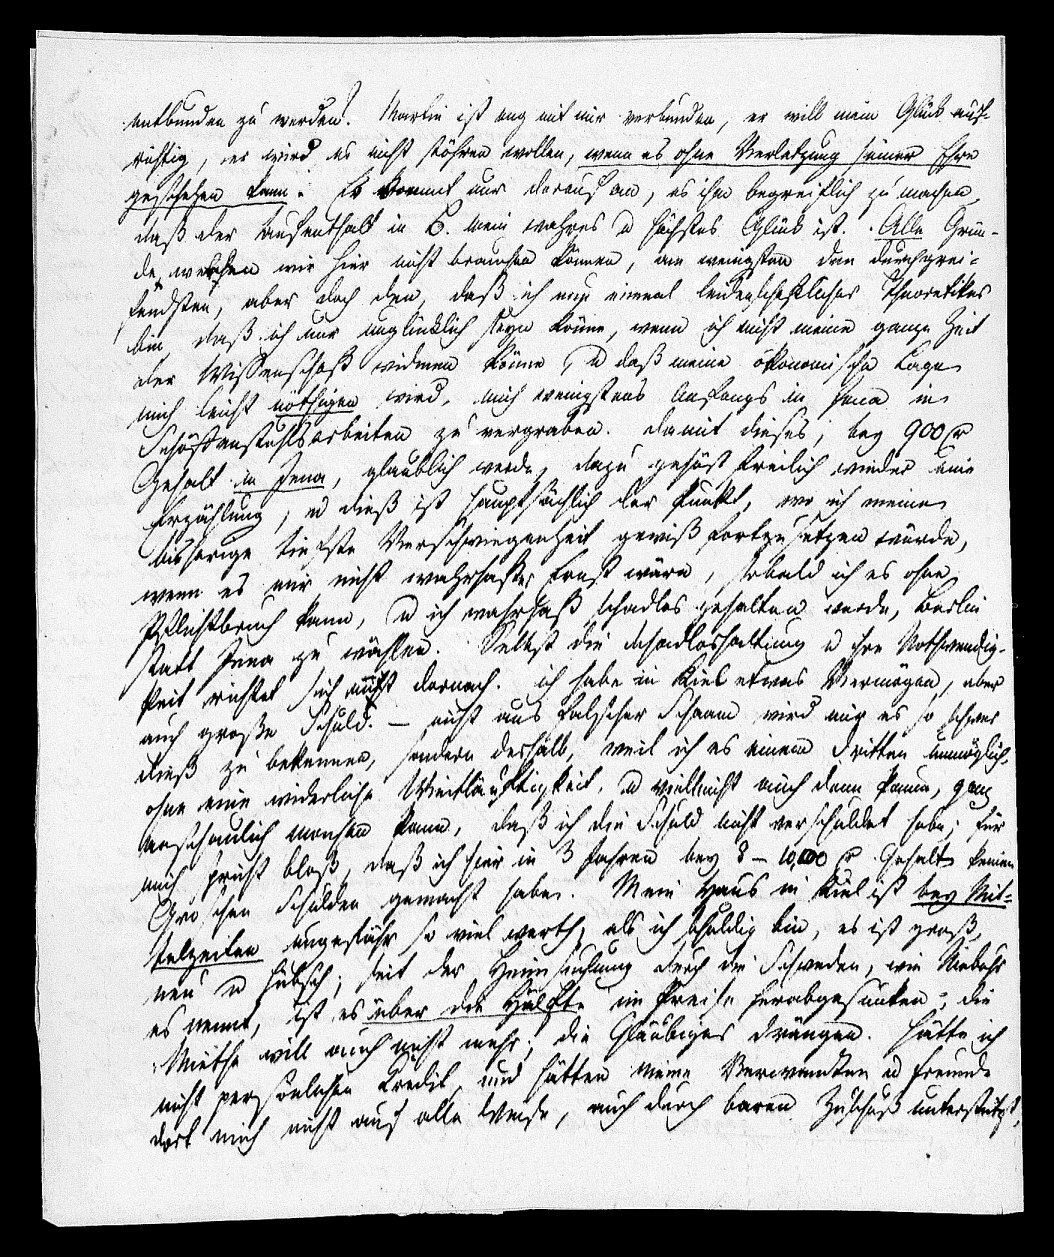 entbunden zu werden? Martin ist eng mit mir verbunden, er will mein Glück auf-
richtig, er wird es nicht stöhren wollen, wenn es ohne Verletzung seiner Ehre
geschehen kann. Es kommt nur darauf an, es ihm begreiflich zu machen,
daß der Aufenthalt in B. mein wahres u höchstes Glück ist. Alle Grün-
de, welchen wir hier nicht brauchen können, am wenigsten den durchgrei-
fendsten, aber doch den, daß ich nun einmal leidenschaftlicher Theoretiker
bin, daß ich nur unglücklich seyn könne, wenn ich nicht meine ganze Zeit
der Wissenschaft widmen könne, u daß meine ökonomische Lage
mich leicht nöthigen wird, mich wenigstens Anfangs in Jena in
Schöffenstuhlsarbeiten zu vergraben. Damit dieses, bey 900 r
Gehalt in Jena, glaublich werde, dazu gehört freilich wieder eine
Erzählung, u dieß ist hauptsächlich der Punkt, wo ich meine
bisherige tiefste Verschwiegenheit gewiß fortzusetzen würde,
wenn es mir nicht wahrhafter Ernst wäre, sobald ich es ohne
Pflichtbruch kann, u ich wahrhaft schadlos gehalten werde, Berlin
statt Jena zu wählen. Selbst die Schadloshaltung u ihre Nothwendig-
keit richtet sich nicht darnach. Ich habe in Kiel etwas Vermögen, aber
auch große Schuld. – nicht aus falscher Schaam wird mir es so schwer
dieß zu bekennen, sondern deshalb, weil ich es einem Dritten unmöglich,
ohne eine widerliche Weitläuftigkeit, u vielleicht auch dann kaum, ganz
anschaulich machen kann, daß ich die Schuld nicht verschuldet habe; für
mich spricht bloß, daß ich hier in 3 Jahren bey 8 – 1000 r Gehalt keinen
Groschen Schulden gemacht habe. Mein Haus in Kiel ist bey Mit-
telzeiten ungefähr so viel werth, als ich schuldig bin, es ist groß,
neu u hübsch; seit der Heimsuchung durch die Schweden, wie Niebuhr
es nennt, ist es über die Hälfte im Preise herabgesunken; die
Miethe will auch nicht mehr; die Gläubiger drängen. Hätte ich
nicht persönlichen Credit, und hätten meine Verwandten u Freunde
dort mich nicht auf alle Weise, auch durch baren Zuschuß unterstützt,